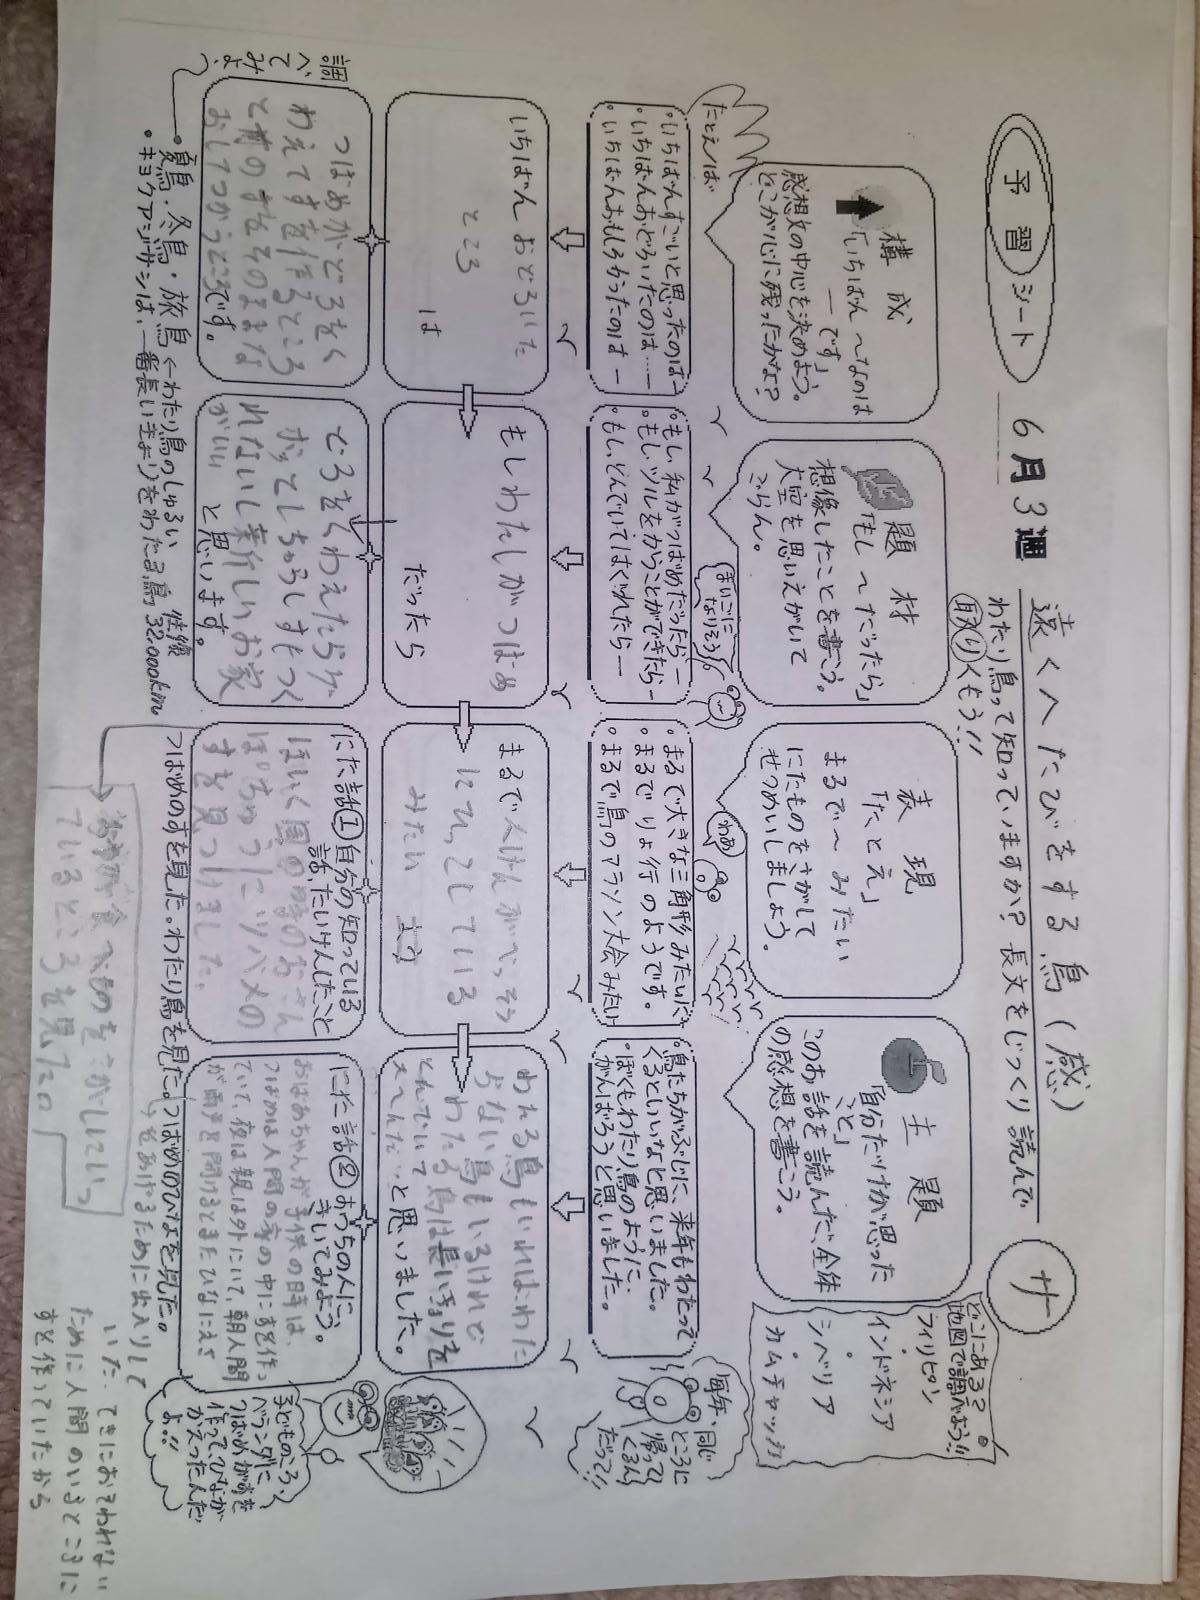 予習シート
6月3週
遠くへたびをする鳥（感）
わたり鳥って知っていますか？長文をじっくり読んで
取りくもう!!
サ
構成
「いちばん〜なのは
―です」
感想文の中心を決めよう。
どこが心に残ったかな？
題材
「もし〜だったら」
想像したことを書こう。
大空を思いえがいて
ごらん。
表現
「たとえ」
まるで〜みたい
にたものをさがして
せつめいしましょう。
主題
「自分だけが思った
こと」
このお話を読んだ、全体
の感想を書こう。
どこにある？
地図で調べよう!!
フィリピン
インドネシア
シベリア
カムチャツカ
たとえば
・いちばんすごいと思ったのは―
・いちばんおどろいたのは…―
・いちばんおもしろかったのは―
まいごに
なりそう
・もし、私がつばめだったら―
・もし、ツルをかうことができたら―
・もし、とんでいてはぐれたら―
わあ
・まるで大きな三角形みたいに
・まるでりょ行のようです。
・まるで鳥のマラソン大会みたい
・鳥たちがぶじに、来年もわたって
くるといいなと思いました。
・ぼくもわたり鳥のように
がんばろうと思いました。
毎年、同じ
ところに
帰って
くるん
だって!!
いちばんおどろいた
ところ
は
もしわたしがつばめ
だったら
まるで人けんがべっそう
にひっこしている
みたい
よう
わたる鳥もいればわた
らない鳥もいるけれど
わたる鳥は長いきょりを
とんでいて
と思いました。
つばめがどろをく
わえてすを作るところ
と前のすをそのままな
おしてつかうところです。
どろをくわえたらゲ
ボッとしちゃうしすもつく
れないし新しいお家
がいい
と思います。
にた話①自分の知っている
話、たいけんしたこと
ほいく園の時のおさん
ぽちゅうにツバメの
すを見つけました。
にた話②おうちの人に、
きいてみよう。
おばあちゃんが子供の日時は、
つばめは人間の家の中にすを作っ
ていて、夜は親は外にいて、朝人間
が雨戸を開けるとまたひなにえさ
をあげるために出入りして
いた。てきにおそわれない
ために人間のいるところに
すを作っていたから
子どものころ、
ベランダに
つばめがすを
作って、ひなが
かえったんだ
よ!!
調べてみよう
・夏鳥・冬鳥・旅鳥←わたり鳥のしゅるい
・キョクアジサシは、一番長いきょりをわたる鳥 32,000km
つばめのすを見た。わたり鳥を見た。つばめのひなを見た。
食べものをさがしにいっ
ているところを見た。